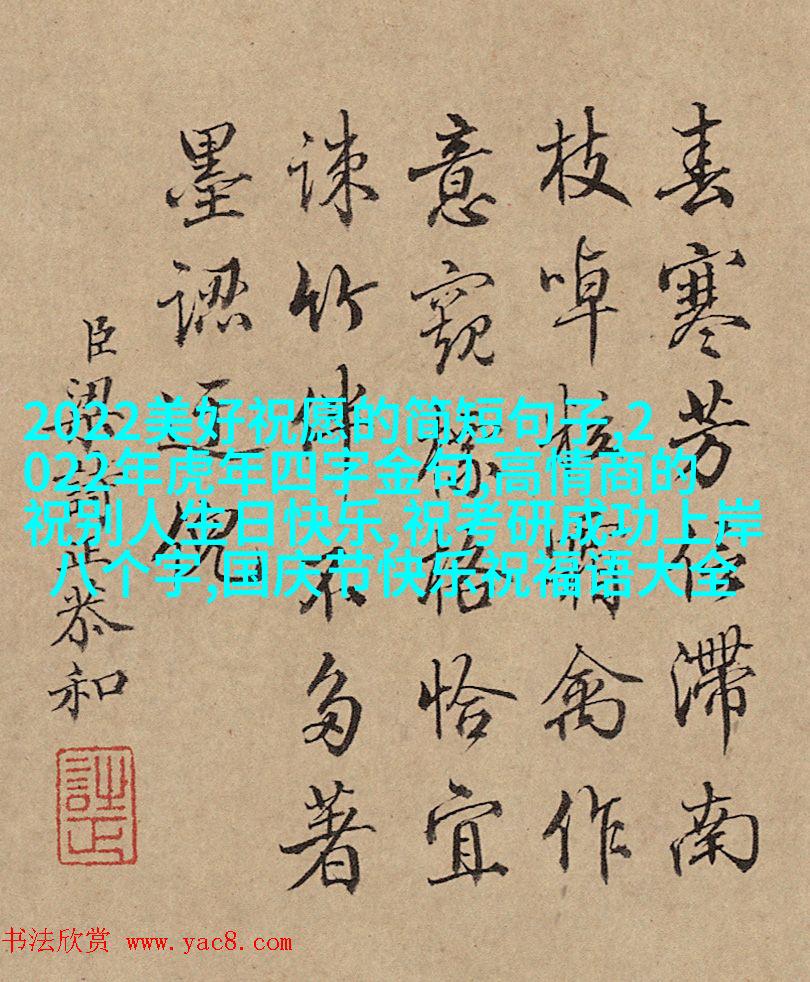 春寒芳信滯南
枝啅禽作
意窺格恰宜
竹伴不多著
墨認逼
臣梁詩正恭和
2022美好祝愿的简短句子,2
022年虎年四字金句,高情商的
祝别人生日快乐,祝考研成功上岸
八个字,国庆节快乐祝福语大全
书法欣赏 www.yac8.com